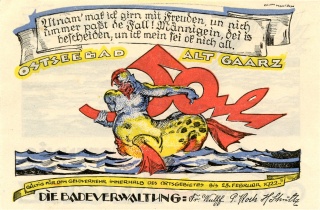 Ulnam' mak ick girn mit Freuden, un nich
ümmer paßt de Fall! Männigein, dei is
bescheiden, un ick mein sei ok nich all.
OSTSEEBAD ALT GAARZ
50 Pf
GÜLTIG FÜR DEN GELDVERKEHR INNERHALB DES ORTSGEBIETES BIS 28. FEBRUAR 1922
DIE BADEVERWALTUNG: